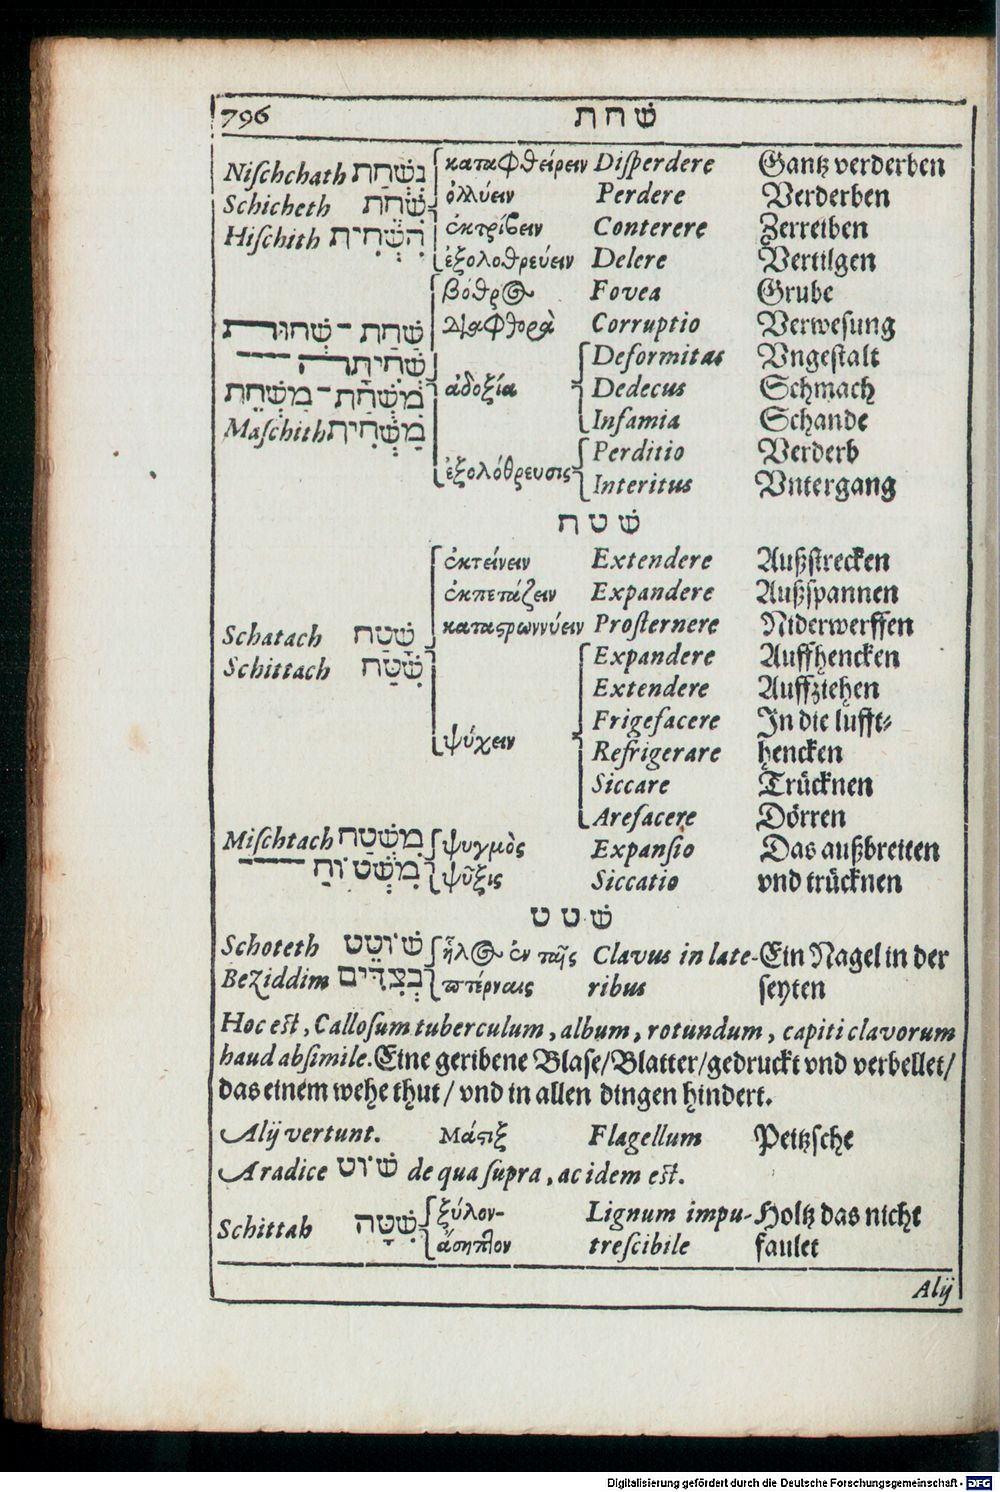 796 שׁחת
Niſchchath נִשְׁחַת καταφθείρειν Diſperdere Gantz verderben
Schicheth שִׁחֵת ὀλλύειν Perdere Verderben
Hiſchith הִשְׁחִית ἐκτρίβειν Conterere Zerreiben
ἐξολοθρεύειν Delere Vertilgen
βόθρος Fovea Grube
שַׁחַת - שְׁחוּת διαφθορὰ Corruptio Verwesung
Deformitas Vngeſtalt
ἀδοξία Dedecus Schmach
Infamia Schande
Maſchith מַשְׁחִית Perditio Verderb
ἐξολόθρευσις Interitus Vntergang
שׁטח
ἐκτείνειν Extendere Außſtrecken
ἐκπετάζειν Expandere Außſpannen
Schatach שָׁטַח καταςρωννύειν Proſternere Niderwerffen
Schittach שִׁטַּח Expandere Auffhencken
Extendere Auffziehen
Frigefacere In die lufft⸗
ψύχειν Refrigerare hencken
Siccare Trücknen
Arefacere Dörren
Miſchtach מִשְׁטַח ψυγμὸς Expanſio Das außbreiten
מִשְׁטוֹחַ ψῦξις Siccatio vnd trücknen
שׁטט
Schoteth שׁוֹטֵט ἧλος ἐν ταῖς Clavus in late- Ein Nagel in der
Beziddim בְּצִדִּים πτέρναις ribus ſeyten
Hoc eſt, Calloſum tuberculum, album, rotundum, capiti clavorum
haud abſimile. Eine geribene Blaſe/Blatter/gedruckt vnd verbellet/
das einem wehe thut/ vnd in allen dingen hindert.
Alij vertunt. Μάςιξ Flagellum Peitzſche
A radice שׁוֹט de qua ſupra, ac idem eſt.
Schittah שִׁטָּה ξύλον- Lignum impu- Holtz das nicht
ἄσηπτον treſcibile faulet
Alij
Digitalisierung gefördert durch die Deutsche Forschungsgemeinschaft - DFG